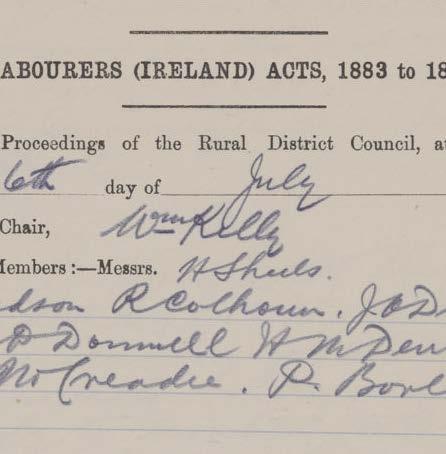 ABOURERS (IRELAND) ACTS, 1883 to 18
Proceedings of the Rural District Council, at
6th day of July
Chair, Wm Kelly
Members:—Messrs. H Sheils.
dson R Colhoun. J O D
O Donnell H McDev
McCreadie. P. Boyl